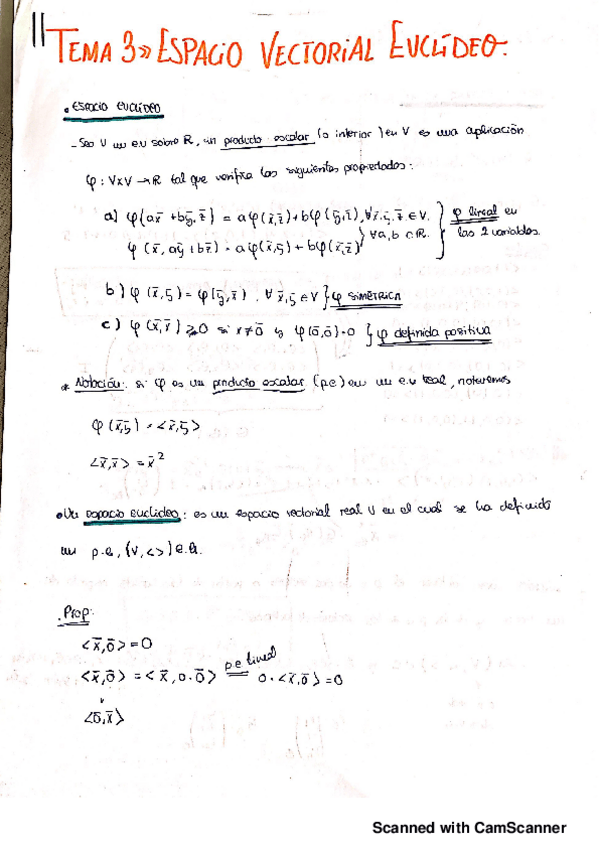 TEMA 3» ESPACIO VECTORIAL EUCLÍDEO.
• ESPACIO EUCLÍDEO
- Sea V un ev sobre R, un producto escalar (o interior) en V es una aplicación
φ: VxV → R tal que verifica las siguientes propiedades:
a) φ(ax̄ + bȳ, z̄) = aφ(x̄,z̄) + bφ(ȳ,z̄), ∀x̄,ȳ,z̄ ∈ V. } φ lineal en
φ(x̄, aȳ + bz̄) = aφ(x̄,ȳ) + bφ(x̄,z̄) } ∀a,b ∈ R. las 2 variables.
b) φ(x̄,ȳ) = φ(ȳ,x̄), ∀ x̄,ȳ ∈ V } φ SIMÉTRICA
c) φ(x̄,x̄) ≥ 0 si x≠0̄ y φ(0̄,0̄)=0 } φ definida positiva
* Notación: si φ es un producto escalar (p.e) en un e.v real, notaremos
φ(x̄,ȳ) = <x̄,ȳ>
<x̄,x̄> = x̄²
• Un espacio euclídeo: es un espacio vectorial real V en el cual se ha definido
un p.e, (V,<>) e.e.
. Prop:
<x̄,0̄> = 0
<x̄,0̄> = <x̄, 0·0̄> p.e lineal = 0·<x̄,0̄> = 0
<0̄,x̄>
Scanned with CamScanner